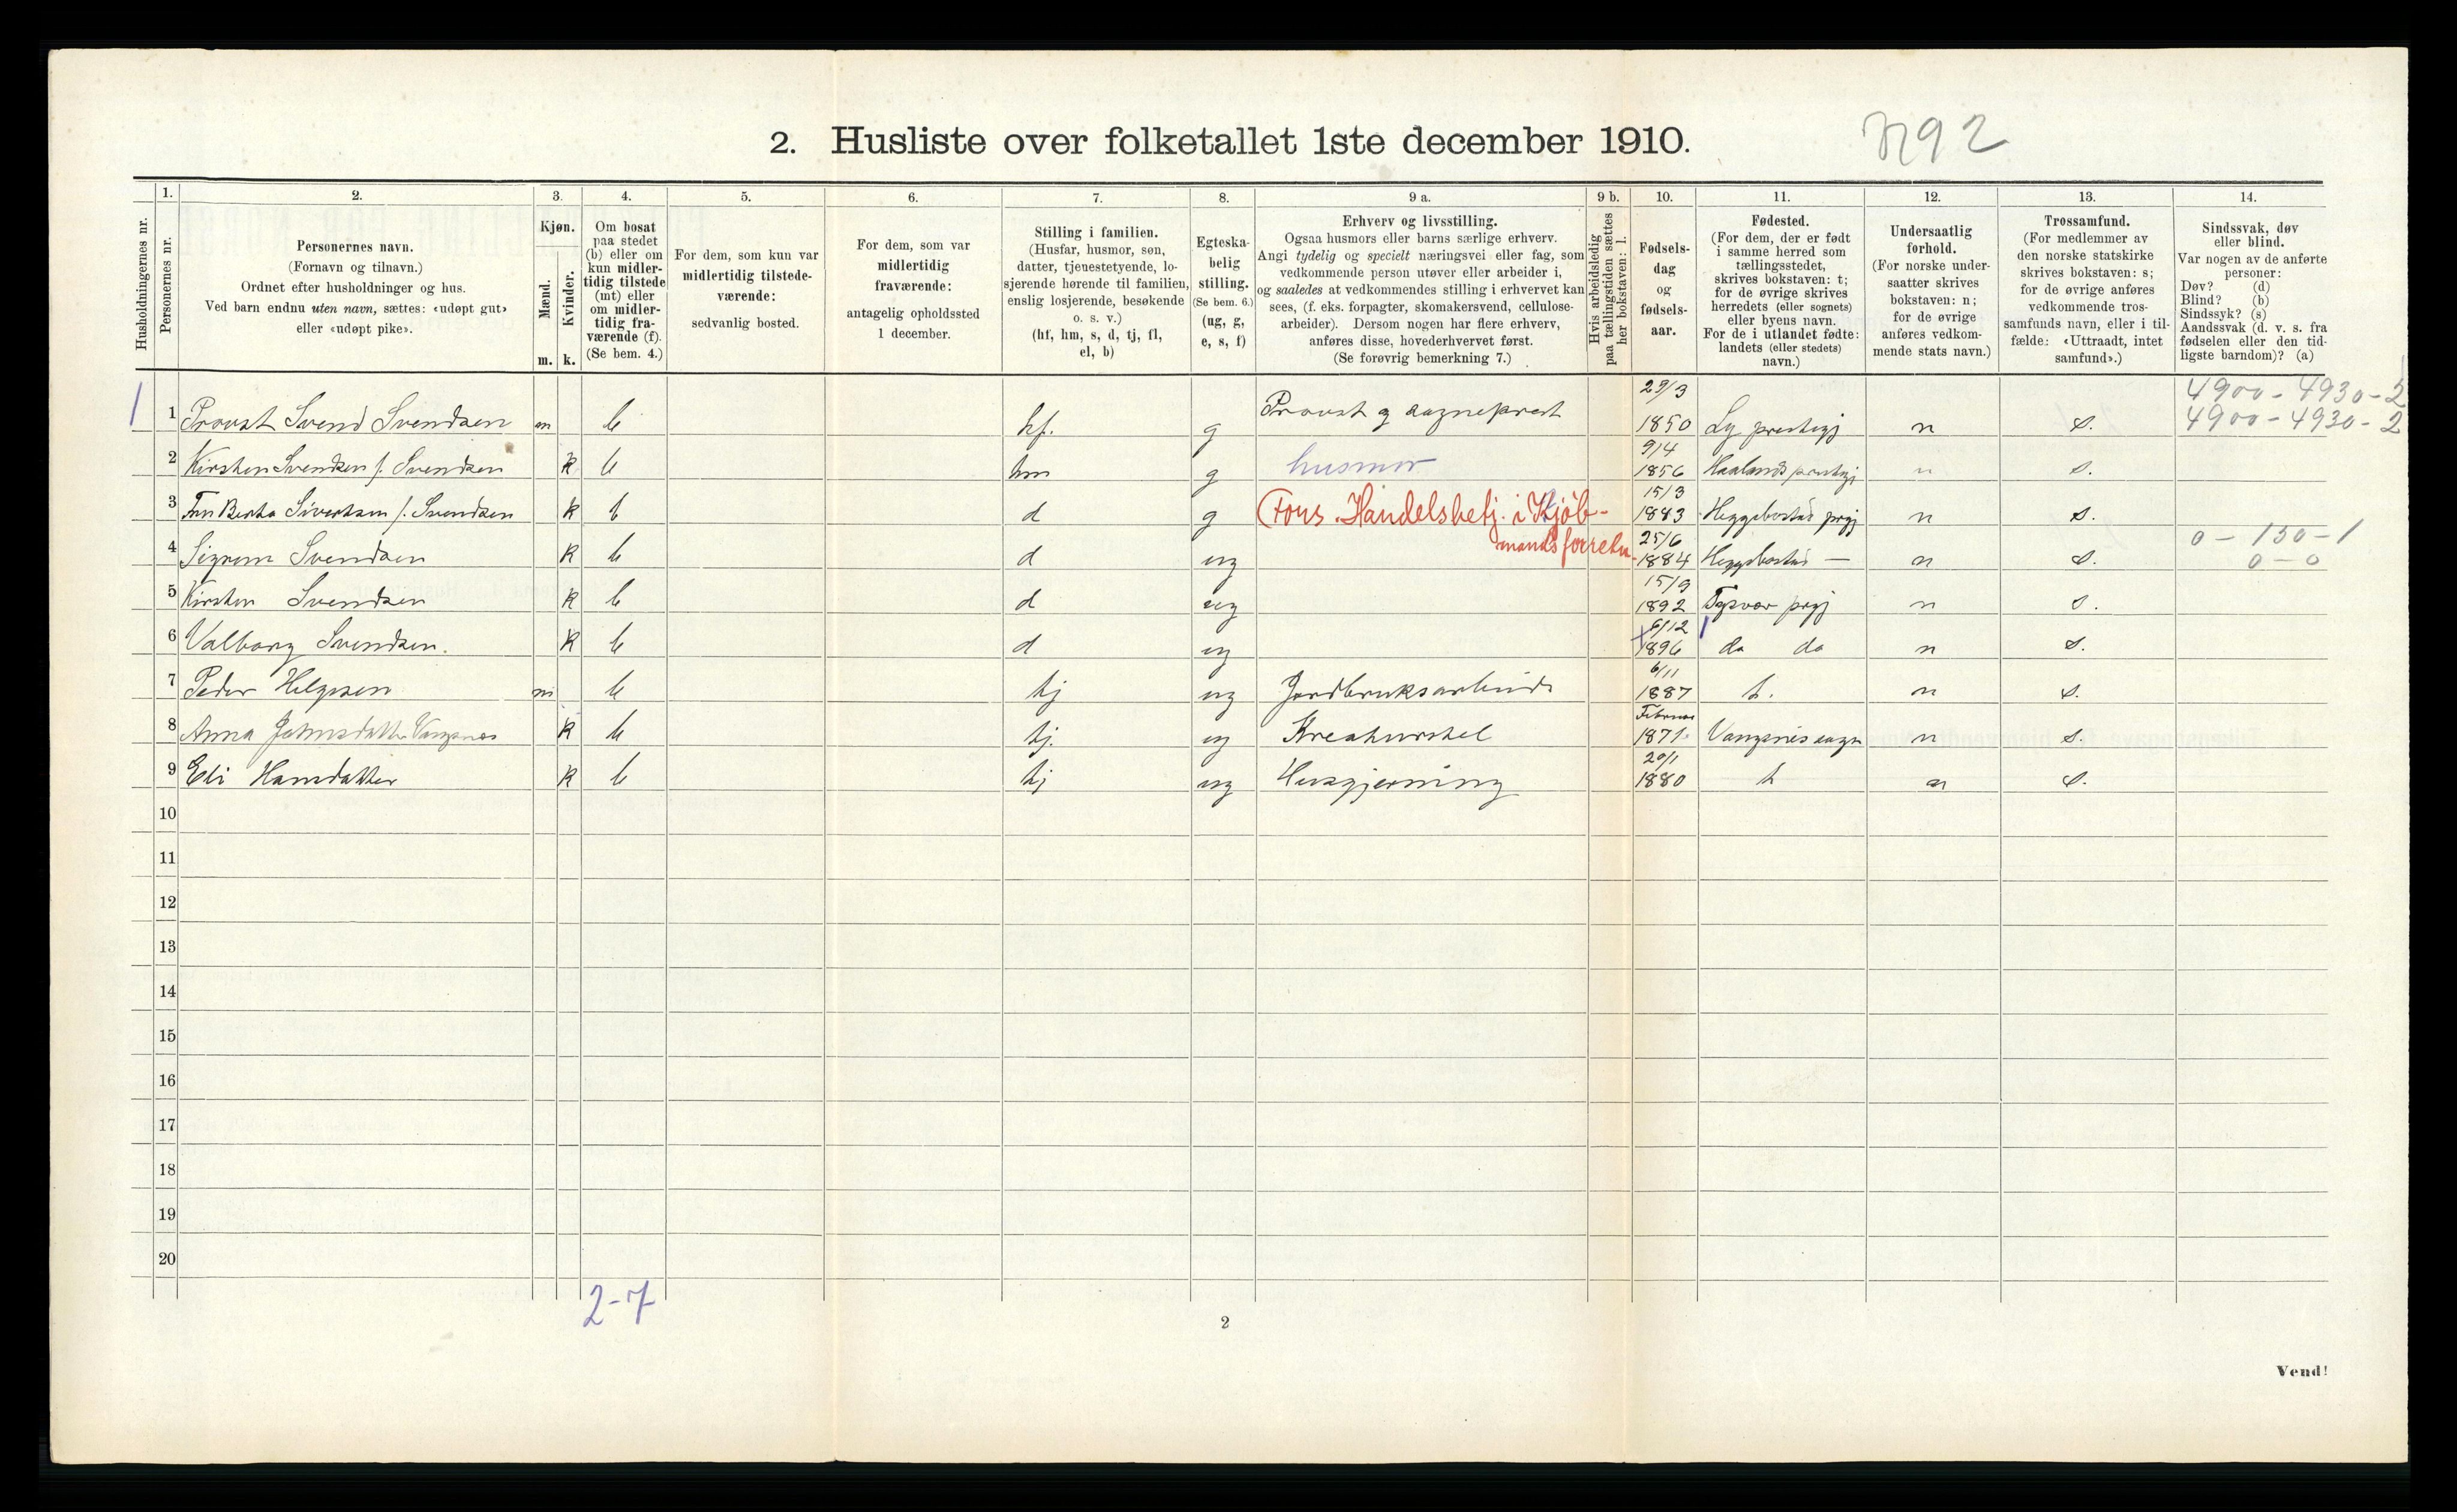 2. Husliste over folketallet 1ste december 1910.
N92
Husholdningernes nr.
1.
Personernes nr.
2.
Personernes navn.
(Fornavn og tilnavn.)
Ordnet efter husholdninger og hus.
Ved barn endnu uten navn, sættes: «udøpt gut»
eller «udøpt pike».
3.
Kjøn.
Mænd.
Kvinder.
m. k.
4.
Om bosat
paa stedet
(b) eller om
kun midler-
tidig tilstede
(mt) eller
om midler-
tidig fra-
værende (f).
(Se bem. 4.)
5.
For dem, som kun var
midlertidig tilstede-
værende:
sedvanlig bosted.
6.
For dem, som var
midlertidig
fraværende:
antagelig opholdssted
1 december.
7.
Stilling i familien.
(Husfar, husmor, søn,
datter, tjenestetyende, lo-
sjerende hørende til familien,
enslig losjerende, besøkende
o. s. v.)
(hf, hm, s, d, tj, fl,
el, b)
8.
Egteska-
belig
stilling.
(Se bem. 6.)
(ug, g,
e, s, f)
9 a.
Erhverv og livsstilling.
Ogsaa husmors eller barns særlige erhverv.
Angi tydelig og specielt næringsvei eller fag, som
vedkommende person utøver eller arbeider i,
og saaledes at vedkommendes stilling i erhvervet kan
sees, (f. eks. forpagter, skomakersvend, cellulose-
arbeider). Dersom nogen har flere erhverv,
anføres disse, hovederhvervet først.
(Se forøvrig bemerkning 7.)
9 b.
Hvis arbeidsledig
paa tællingstiden sættes
her bokstaven: l.
10.
Fødsels-
dag
og
fødsels-
aar.
11.
Fødested.
(For dem, der er født
i samme herred som
tællingsstedet,
skrives bokstaven: t;
for de øvrige skrives
herredets (eller sognets)
eller byens navn.
For de i utlandet fødte:
landets (eller stedets)
navn.)
12.
Undersaatlig
forhold.
(For norske under-
saatter skrives
bokstaven: n;
for de øvrige
anføres vedkom-
mende stats navn.)
13.
Trossamfund.
(For medlemmer av
den norske statskirke
skrives bokstaven: s;
for de øvrige anføres
vedkommende tros-
samfunds navn, eller i til-
fælde: «Uttraadt, intet
samfund».)
14.
Sindssvak, døv
eller blind.
Var nogen av de anførte
personer:
Døv? (d)
Blind? (b)
Sindssyk? (s)
Aandssvak (d. v. s. fra
fødselen eller den tid-
ligste barndom)? (a)
4900 - 4930 - 2
1 1 Provst Svend Svendsen m b hf. g Provst g sogneprest 29/3 1850 Ly prestegj n s. 4900 - 4930 - 2
2 Kirsten Svendsen f. Svendsen k b hm g husmor 9/4 1856 Haalands prestegj n s.
3 Fru Berta Sivertsen f. Svendsen k b d g (Fors. Handelsbetj. i Kjöb- 15/3 1883 Heggebostad prgj n s.
mandsforretn.
4 Sigrun Svendsen k b d ug 25/6 1884 Heggebostad — n s. 0 - 150 - 1
0 - 0
5 Kirsten Svendsen k b d ug 15/9 1892 Tysvær prgj n s.
6 Valborg Svendsen. k b d ug 5/12 1896 do do n s.
7 Peder Helgesen m b tj ug Jordbruksarbeide 6/11 1887 t. n s.
8 Anna Johnsdatter Vangsnes k b tj. ug Kreaturstel Februar 1871. Vangsnes sogn n s.
9 Eli Hansdatter k b tj ug Husgjerning 20/1 1880 t n s.
10
11
12
13
14
15
16
17
18
19
20
2-7
2
Vend!